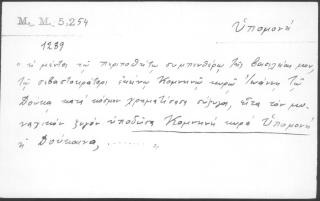 M. M. 5,254 Ὑπομονή
1289
" ἡ μέντοι τῷ περιποθήτῳ συμπενθέρῳ τῆς βασιλείας μου,
τῷ σεβαστοκράτορι ἐκείνῳ Κομνηνῷ κυρῷ Ἰωάννῃ τῷ
Δούκα κατὰ κόσμον χρηματίσασα σύζυγος, εἶτα τὸν μο-
ναχικὸν ζυγὸν ὑποδῦσα Κομνηνὴ κυρὰ Ὑπομονὴ
ἡ Δούκαινα, ........ ,